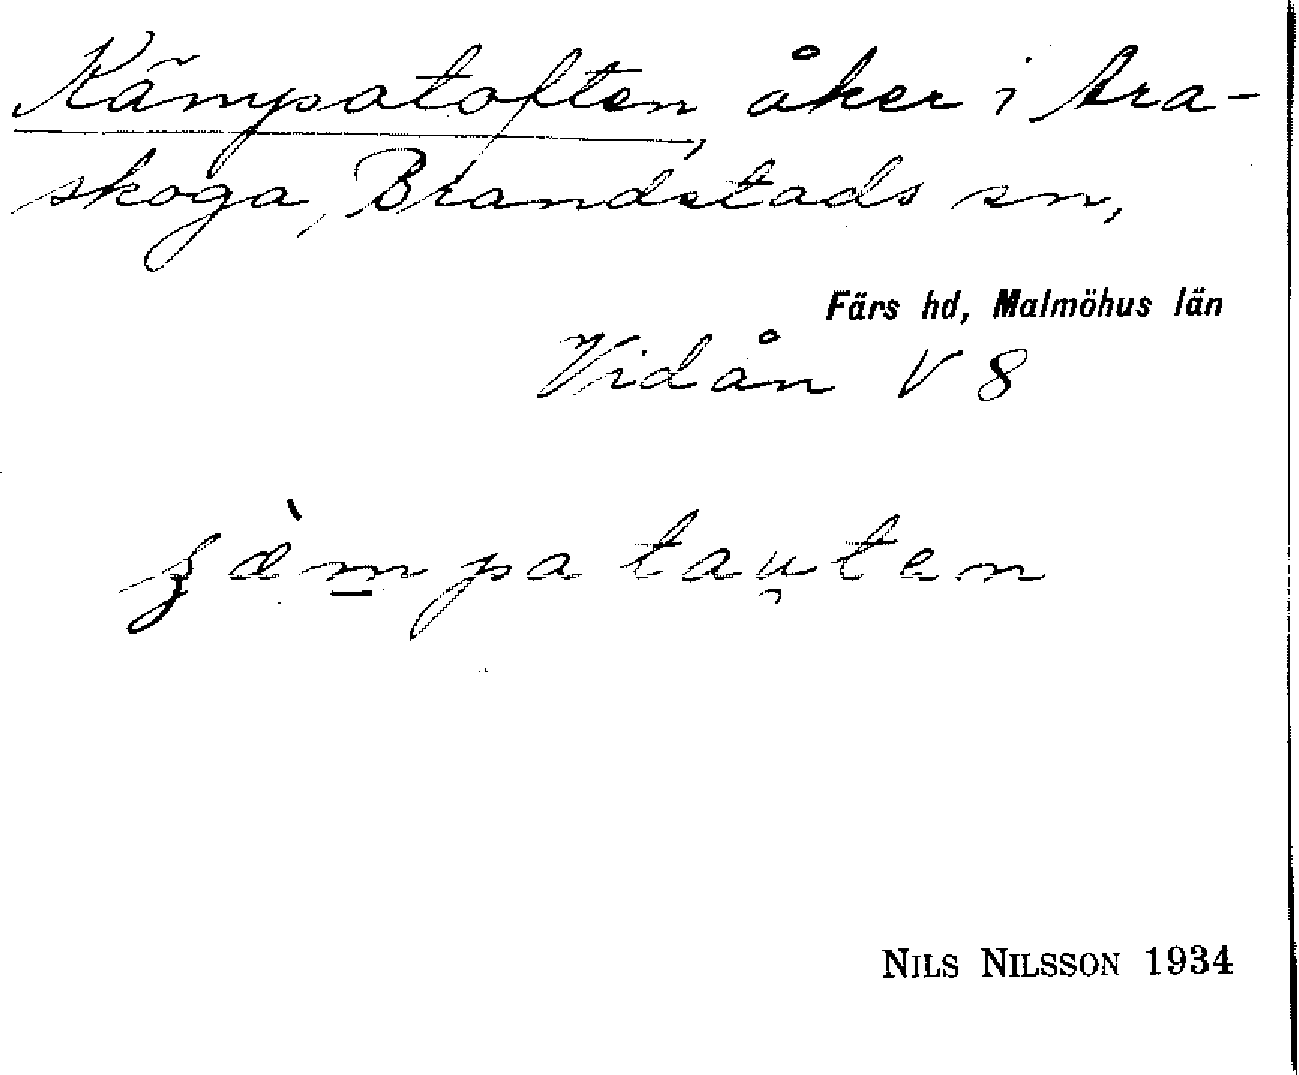 Kämpatoften, åker i Ara-
skoga, Brandstads sn,
Färs hd, Malmöhus län
Vidån V 8
tau̯ten
NILS NILSSON 1934